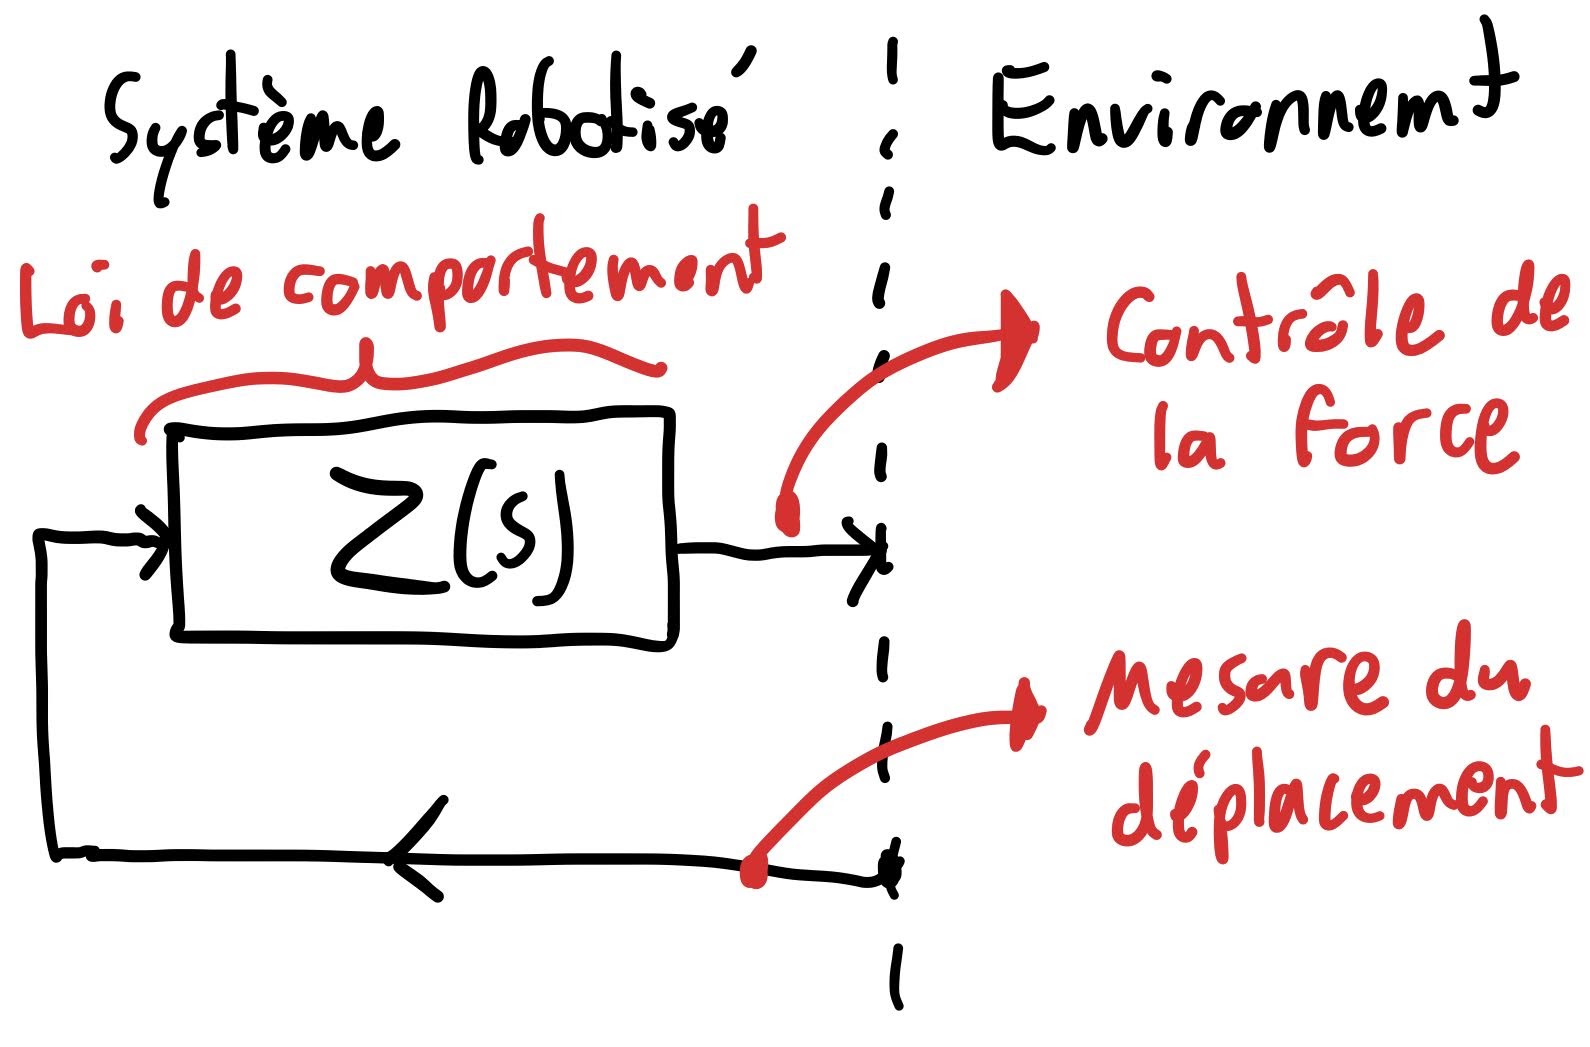 Système Robotisé
Environnemt
Loi de comportement
Contrôle de
la force
Z(s)
Mesure du
déplacement